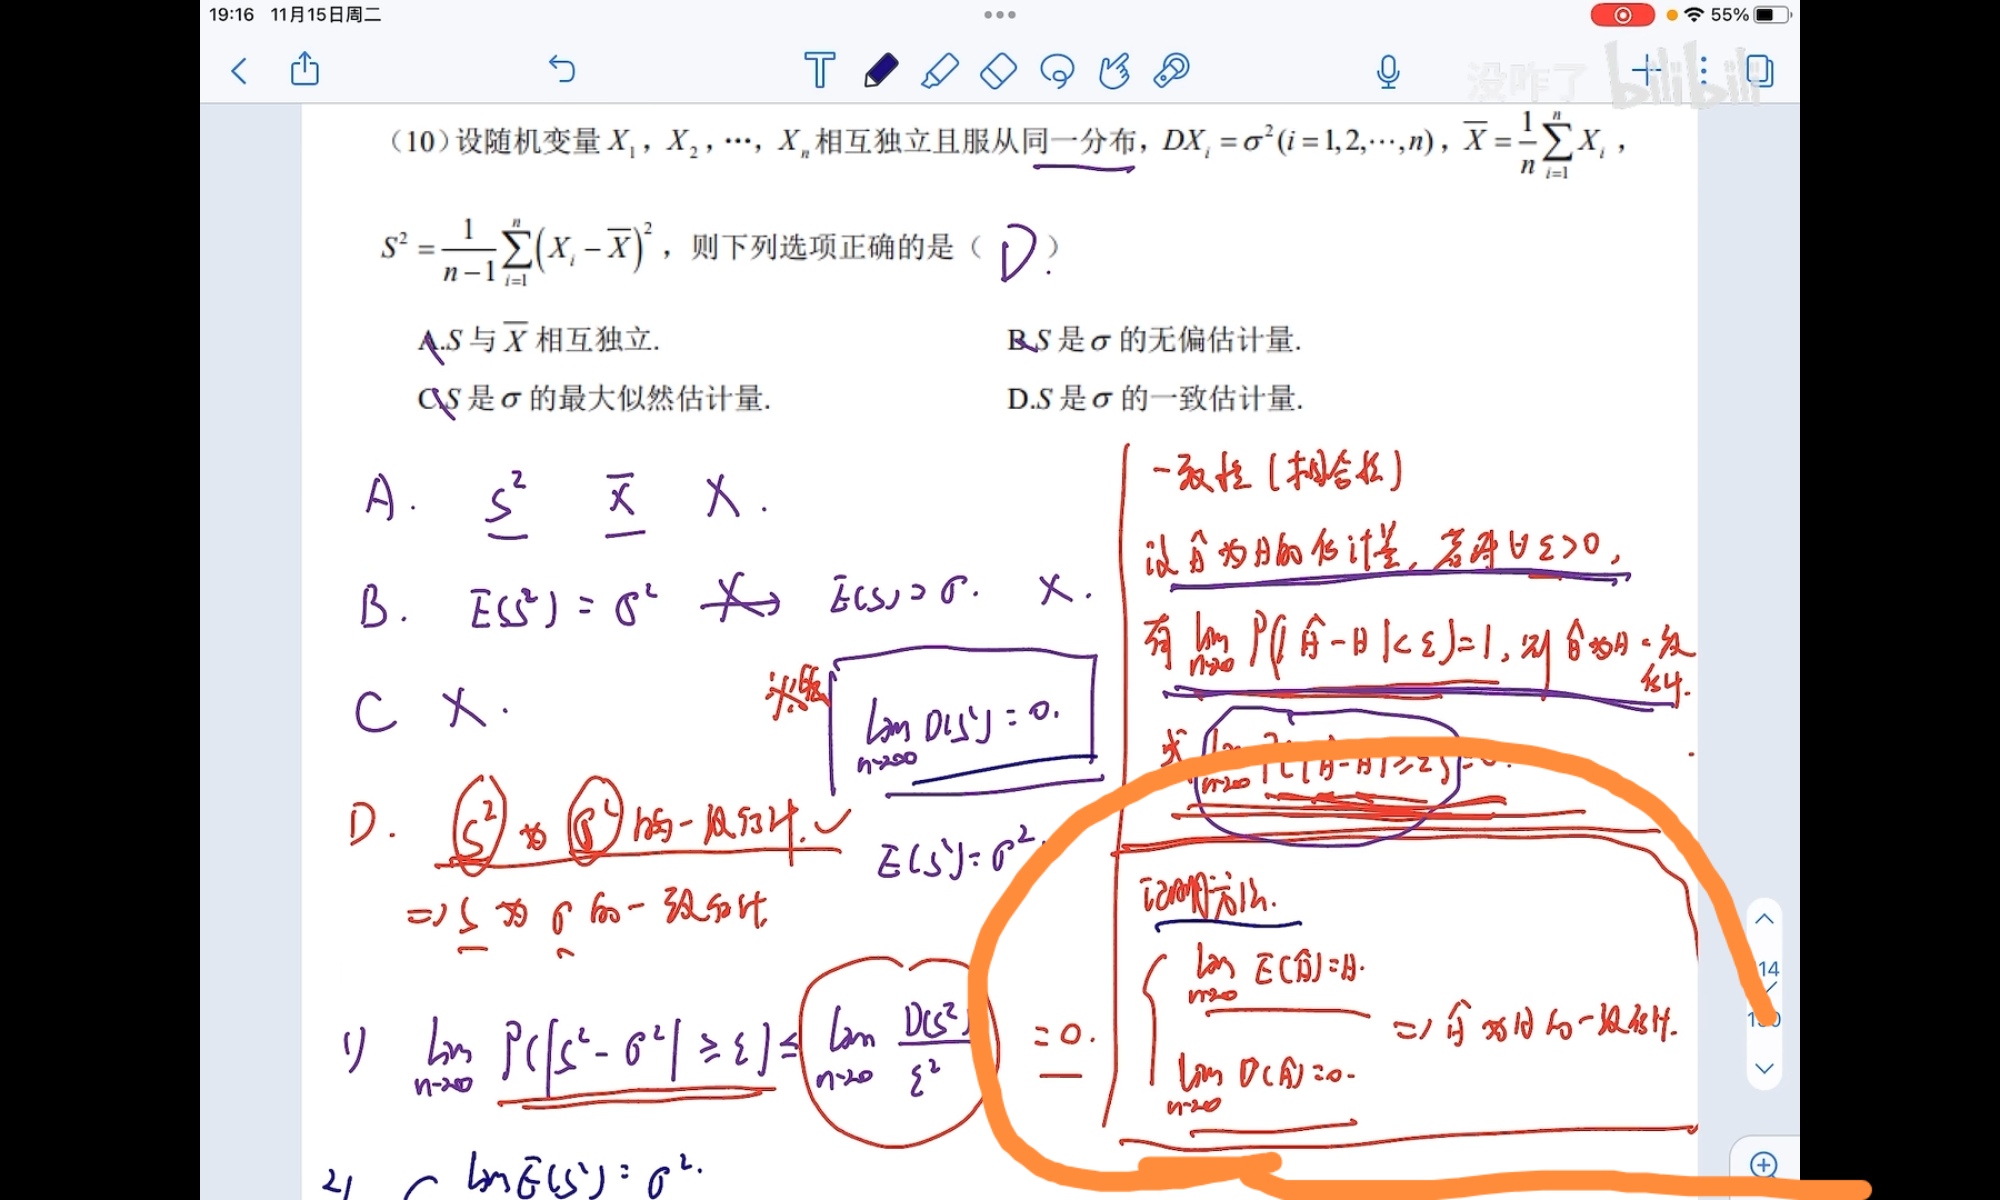 19:16 11月15日周二
55%
没咋了 bilibili
(10)设随机变量 X₁, X₂, ⋯, Xₙ 相互独立且服从同一分布, DXᵢ = σ² (i = 1,2,⋯,n), X̄ = 1/n ∑ᵢ₌₁ⁿ Xᵢ,
S² = 1/(n−1) ∑ᵢ₌₁ⁿ (Xᵢ − X̄)², 则下列选项正确的是( D. )
A.S 与 X̄ 相互独立.
B.S 是 σ 的无偏估计量.
C.S 是 σ 的最大似然估计量.
D.S 是 σ 的一致估计量.
A. S² X̄ X.
B. E(S²) = σ² → E(S) = σ. X.
C X.
lim n→∞ D(S²) = 0.
D. S² 为 σ² 的一致估计. ✓
E(S²) = σ².
⇒ S 为 σ 的一致估计
1) lim n→∞ P(|S² − σ²| ≥ ε) ≤ lim n→∞ D(S²)/ε² = 0.
2) lim E(S²) = σ².
一致性(相合性)
设 θ̂ 为 θ 的估计量, 若对 ∀ ε>0,
有 lim n→∞ P(|θ̂ − θ| < ε) = 1, 则 θ̂ 为 θ 一致
估计.
或 lim n→∞ P(|θ̂ − θ| ≥ ε) = 0.
证明方法.
lim n→∞ E(θ̂) = θ.
⇒ θ̂ 为 θ 的一致估计.
lim n→∞ D(θ̂) = 0.
14